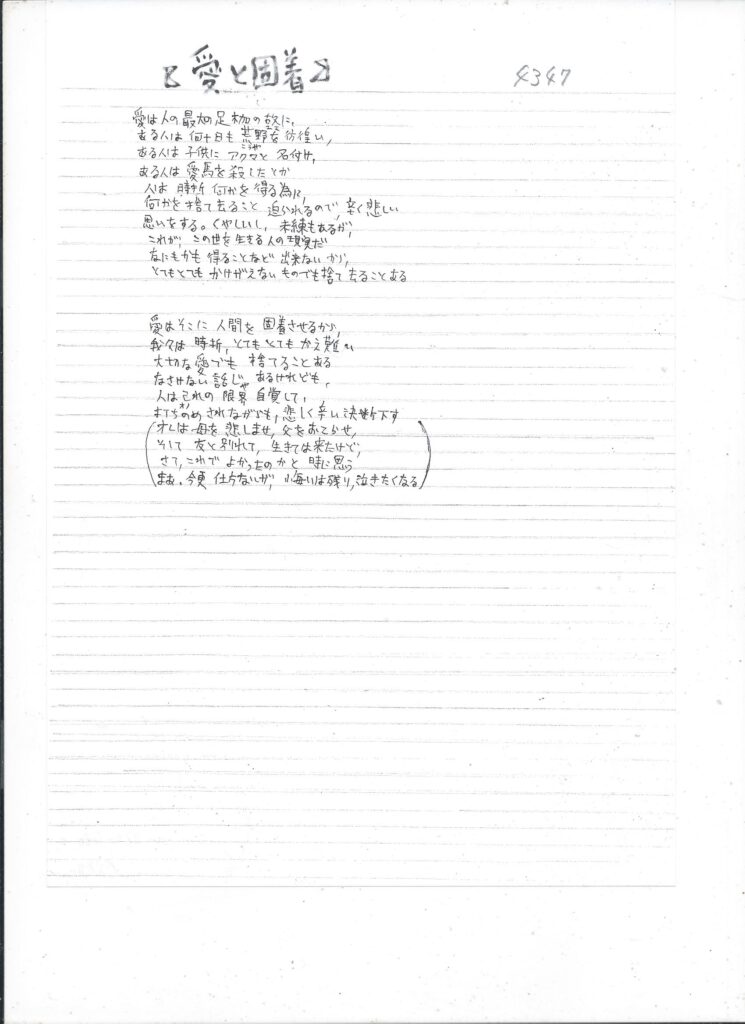 【愛と固着】
4347
愛は人の最短足枷の故に、
ある人は何十日も荒野を彷徨い、
ある人は子供にアクマと名付け、
ある人は愛馬を殺したとか
人は時折何かを得る為に、
何かを捨て去ること迫られるので、辛く悲しい
思いをする。くやしいし、未練もあるが、
これが、この世を生きる人の現実だ
なにもかも得ることなど出来ないから、
とてもとてもかけがえないものでも捨て去ることある
愛はそこに人間を固着させるから、
我々は時折、とてもとてもかえ難い
大切な愛でも捨てることある
なさけない話じゃあるけれども、
人は己れの限界自覚して、
打ちのめされながらも、悲しく辛い決断下す
(オレは母を悲しませ、父をおこらせ、
そして友と別れて、生きては来たけど、
さて、これでよかったのかと時に思う
まあ、今更仕方ないが、悔いは残り、泣きたくなる)